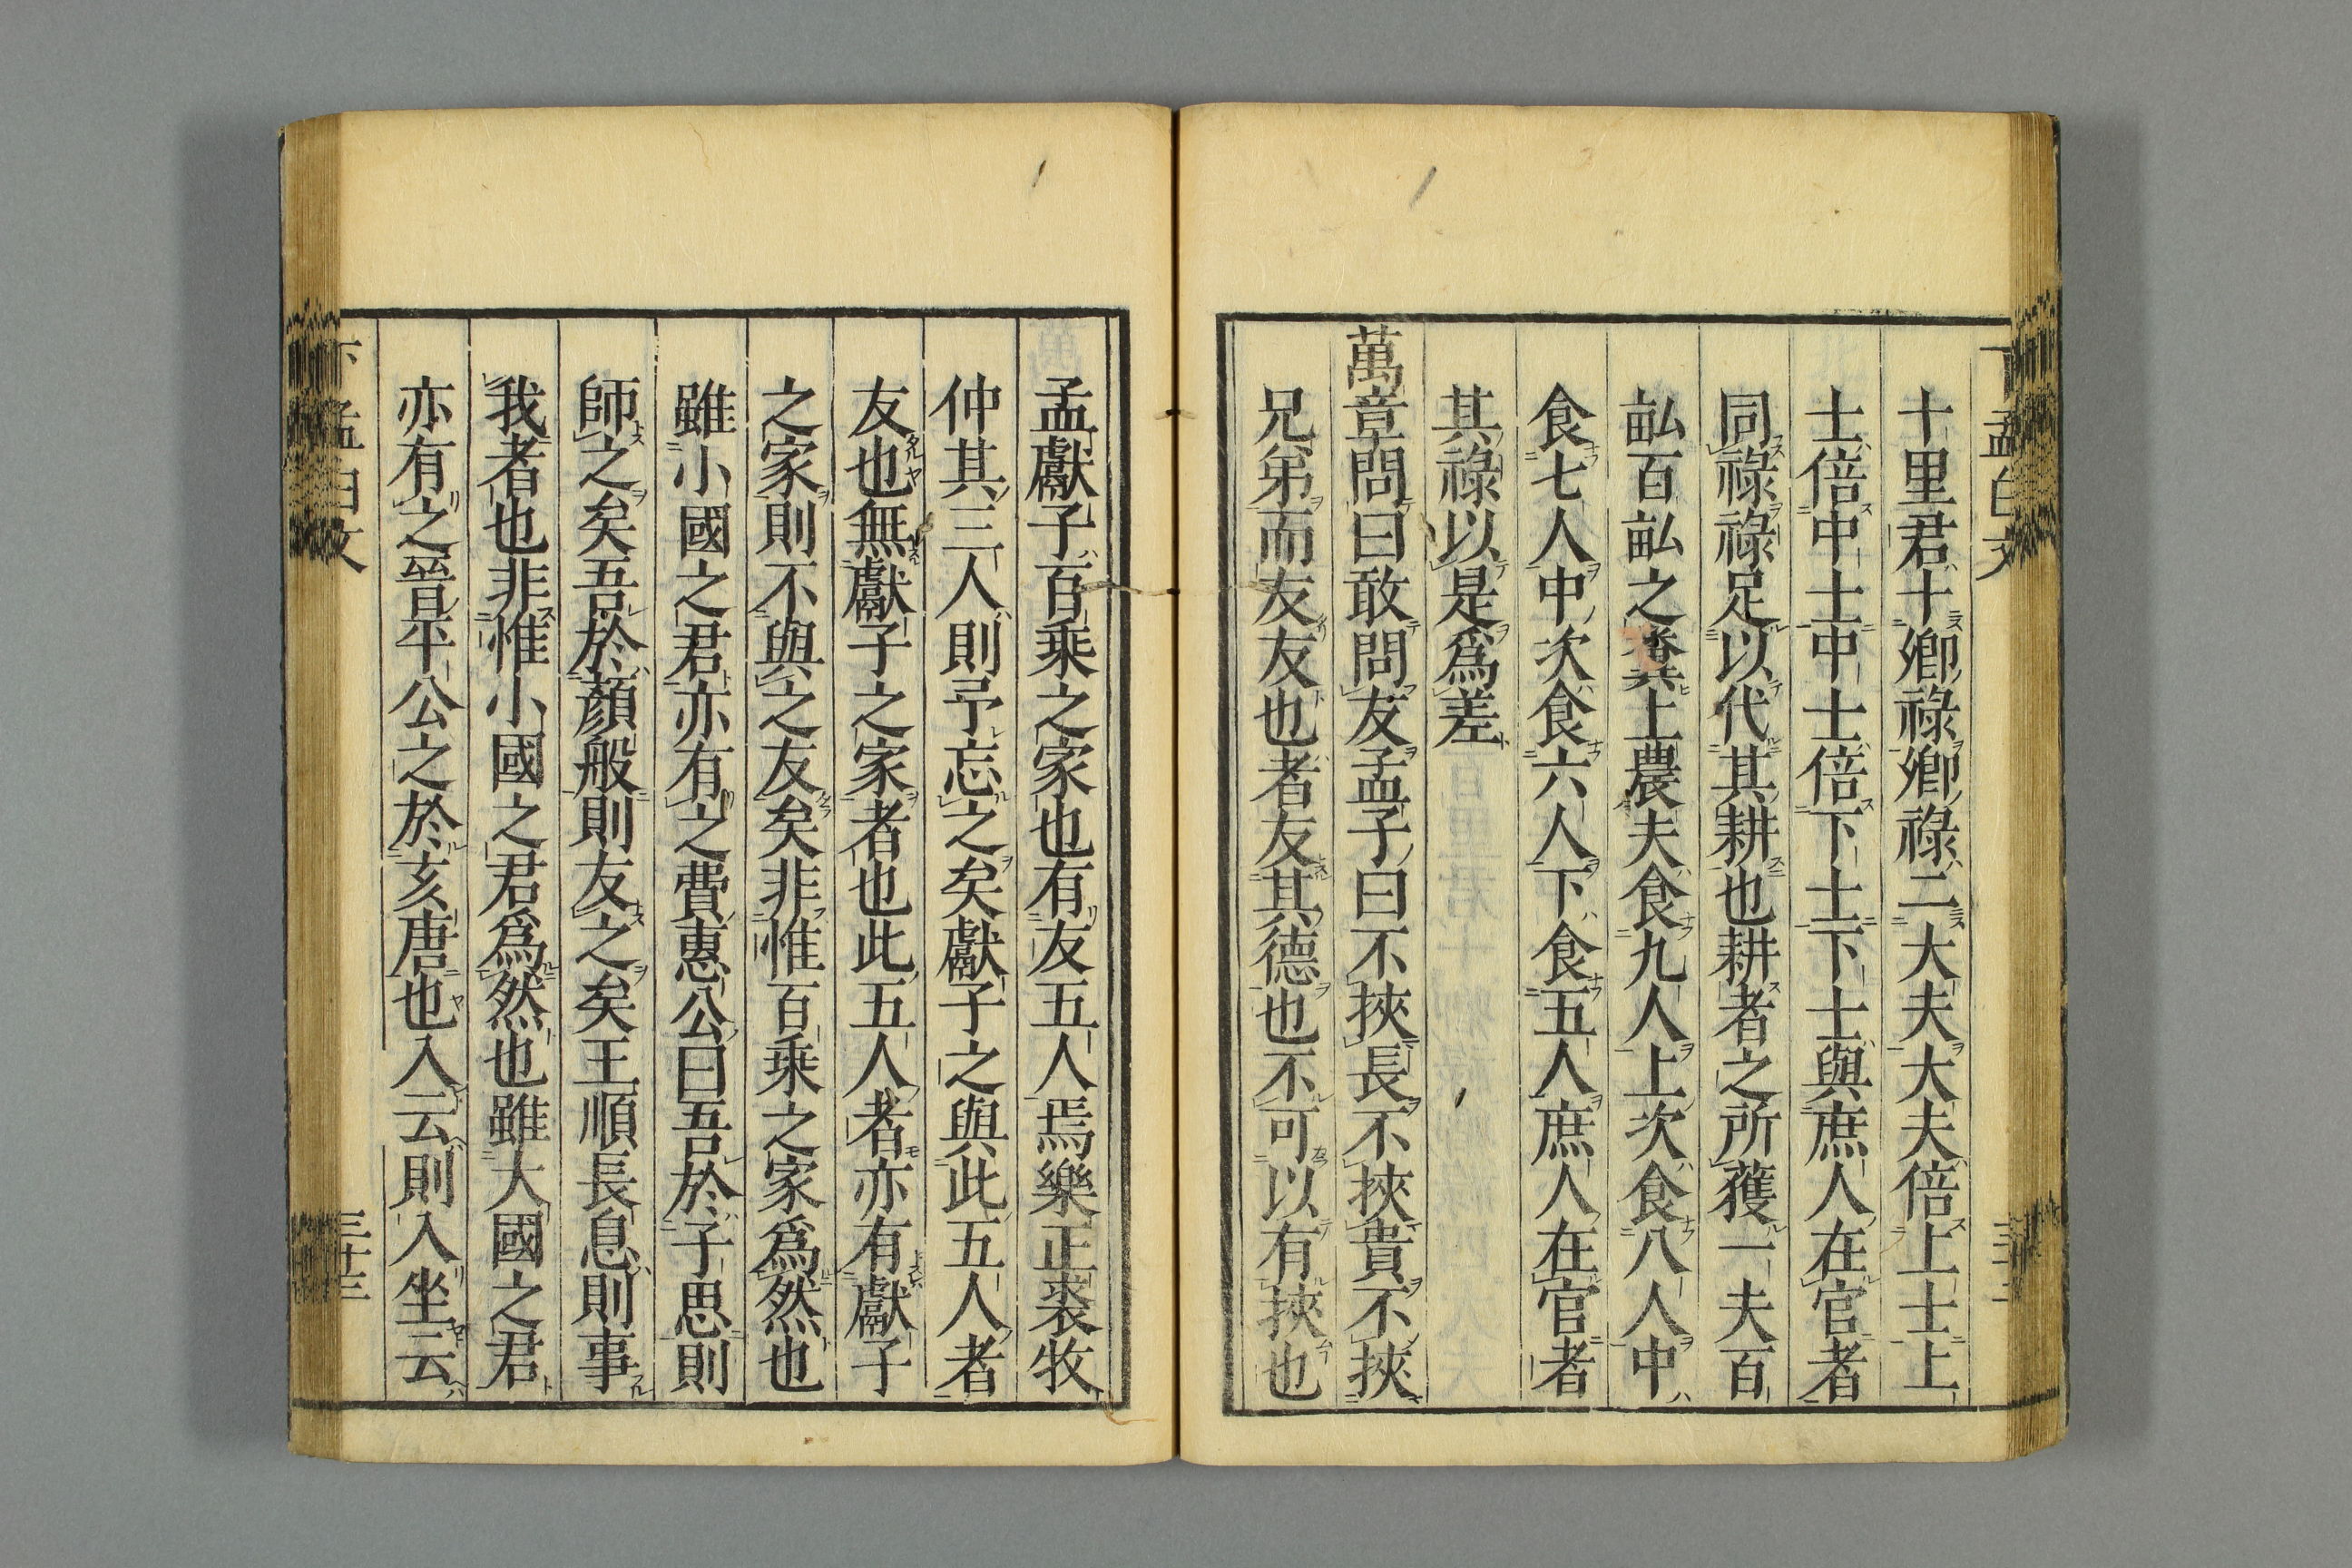 十里君十卿祿卿祿二大夫大夫倍上士上
士倍中士中士倍下士下士與庶人在官者
同祿祿足以代其耕也耕者之所獲一夫百
畒百畒之糞上農夫食九人上次食八人中
食七人中次食六人下食五人庶人在官者
其祿以是爲差
萬章問曰敢問友孟子曰不挾長不挾貴不挾
兄弟而友友也者友其德也不可以有挾也
孟獻子百乘之家也有友五人焉樂正裘牧
仲其三人則予忘之矣獻子之與此五人者
友也無獻子之家者也此五人者亦有獻子
之家則不與之友矣非惟百乘之家爲然也
雖小國之君亦有之費惠公曰吾於子思則
師之矣吾於顔般則友之矣王順長息則事
我者也非惟小國之君爲然也雖大國之君
亦有之晉平公之於亥唐也入云則入坐云